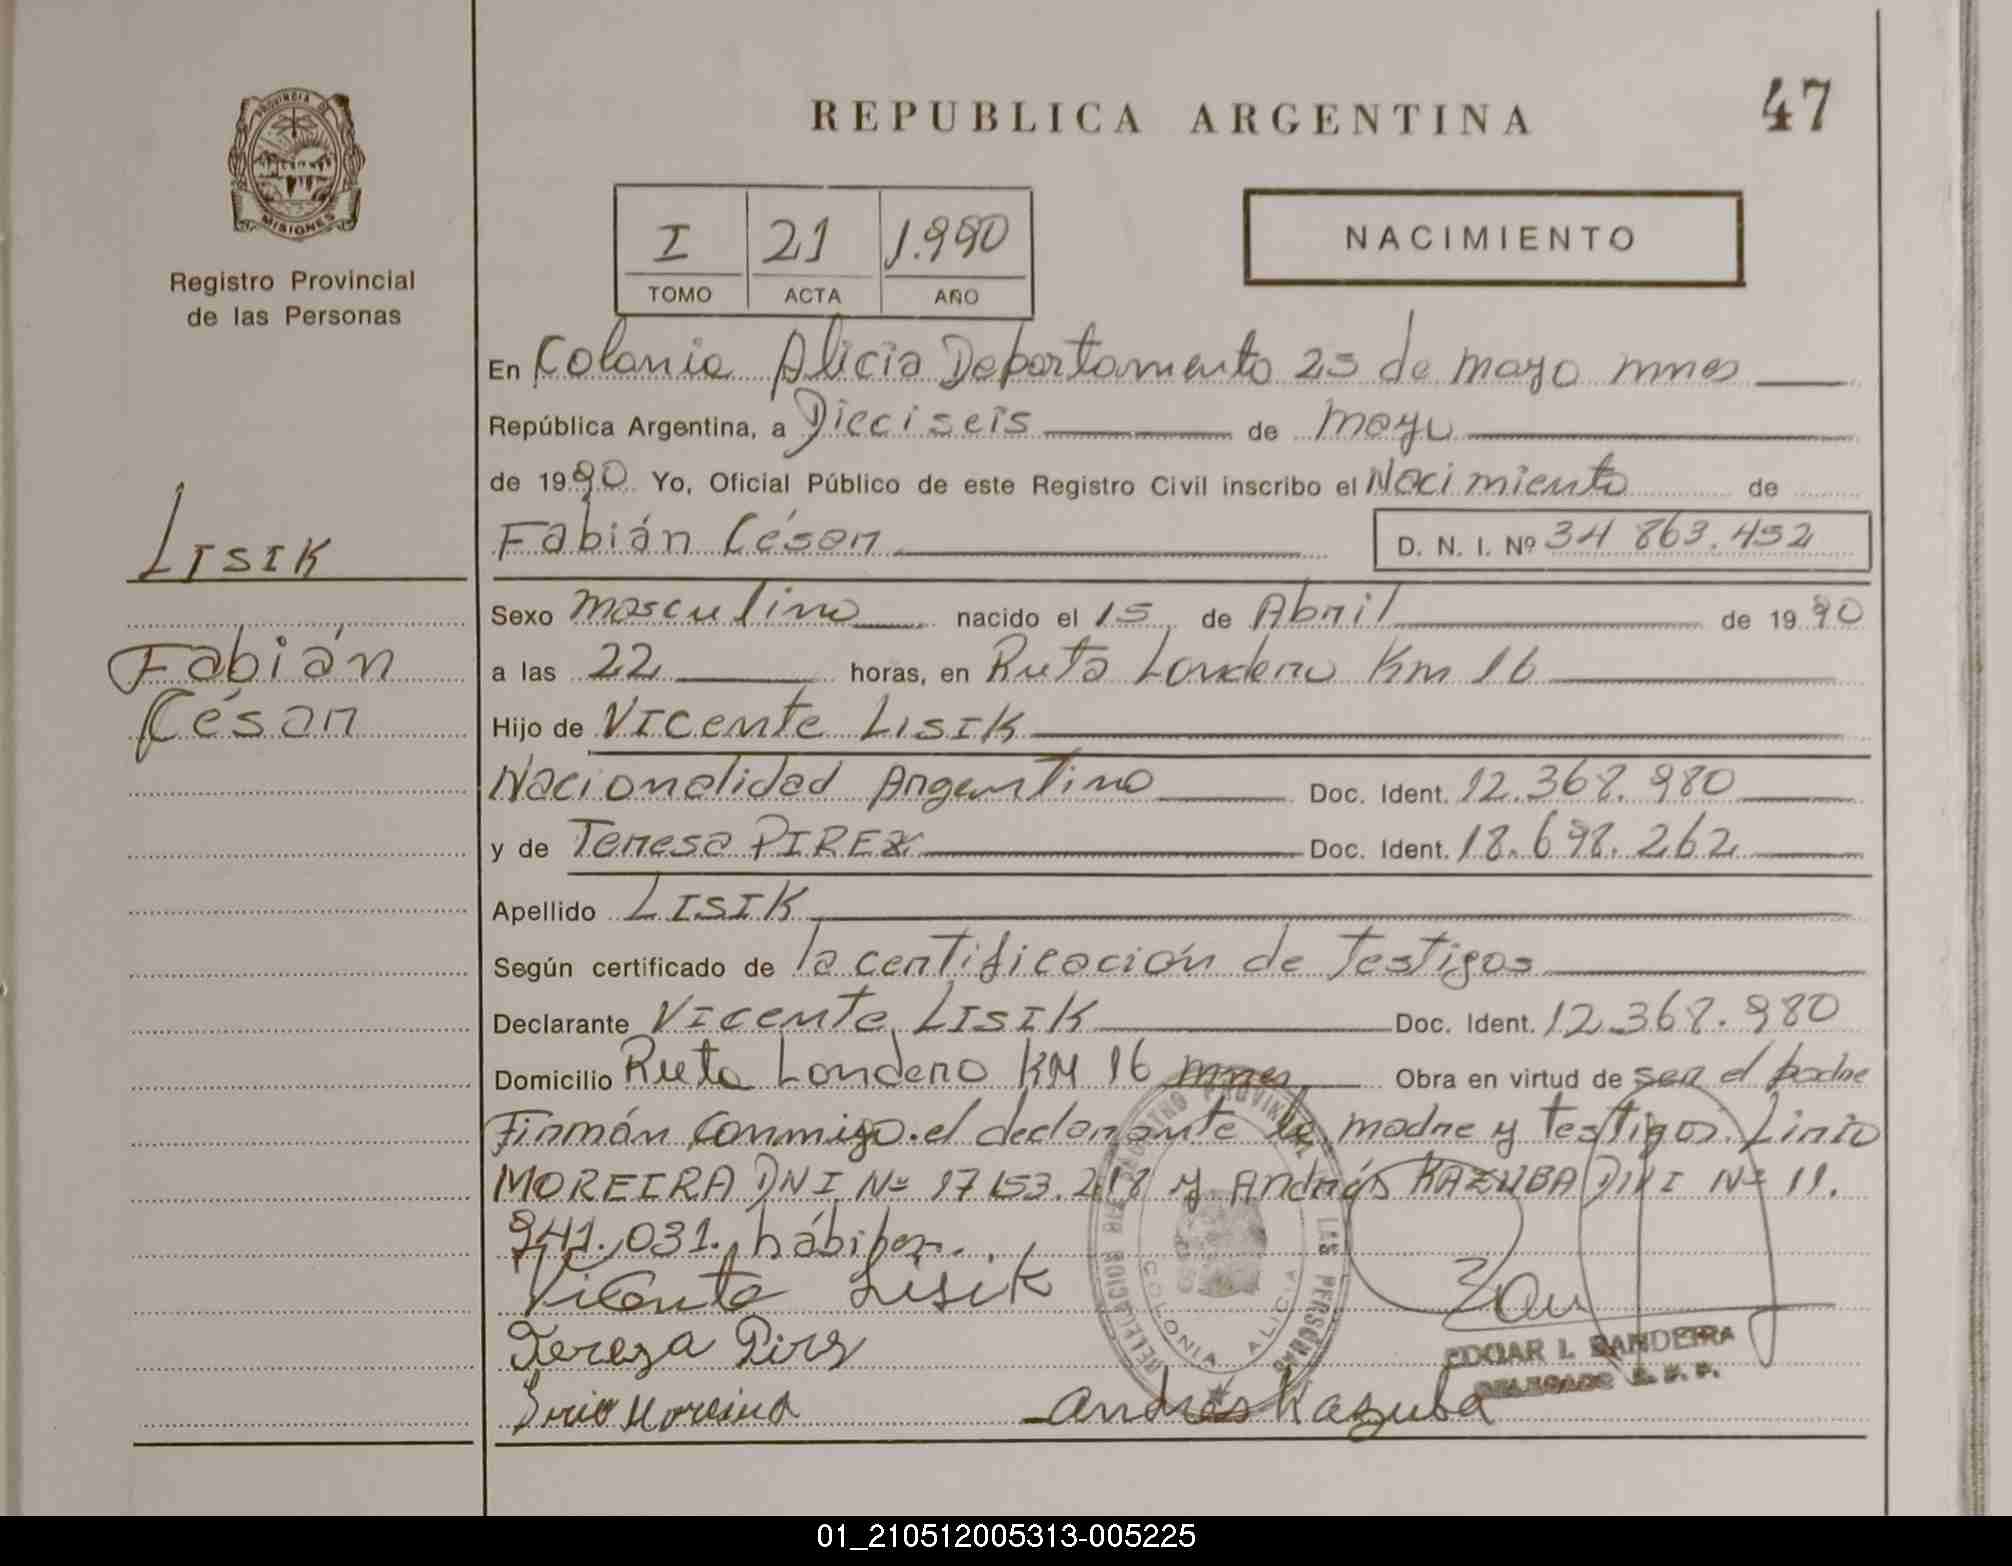 REPUBLICA ARGENTINA
47
PROVINCIA DE
MISIONES
Registro Provincial
de las Personas
I 21 1.990
TOMO ACTA AÑO
NACIMIENTO
En Colonia Alicia Departamento 25 de mayo mnes
República Argentina, a Dieciseis de mayo
de 1990 Yo, Oficial Público de este Registro Civil inscribo el Nacimiento de
Fabián César D. N. I. Nº 34 863.452
LISIK
Fabián
César
Sexo masculino nacido el 15 de Abril de 1990
a las 22 horas, en Ruta Londero Km 16
Hijo de VICente LISIK
Nacionalidad Argentino Doc. Ident. 12.368.980
y de Teresa PIREX Doc. Ident. 18.698.262
Apellido LISIK
Según certificado de la certificación de testigos
Declarante VIcente LISIK Doc. Ident. 12.368.980
Domicilio Ruta Londero KM 16 mnes Obra en virtud de ser el padre
Firmán conmigo el declarante la madre y testigos Lirio
MOREIRA DNI Nº 17 153.218 y Andrés KAZUBA DNI Nº 11.
941.031. hábiles.
Vicente Lisik
Tereza Pirz
Lirio Moreira
Andrés Kazuba
DELEGACION DE REGISTRO PROVINCIAL DE LAS PERSONAS
COLONIA ALICIA
EDGAR I. BANDEIRA
DELEGADO R. P. P.
01_210512005313-005225